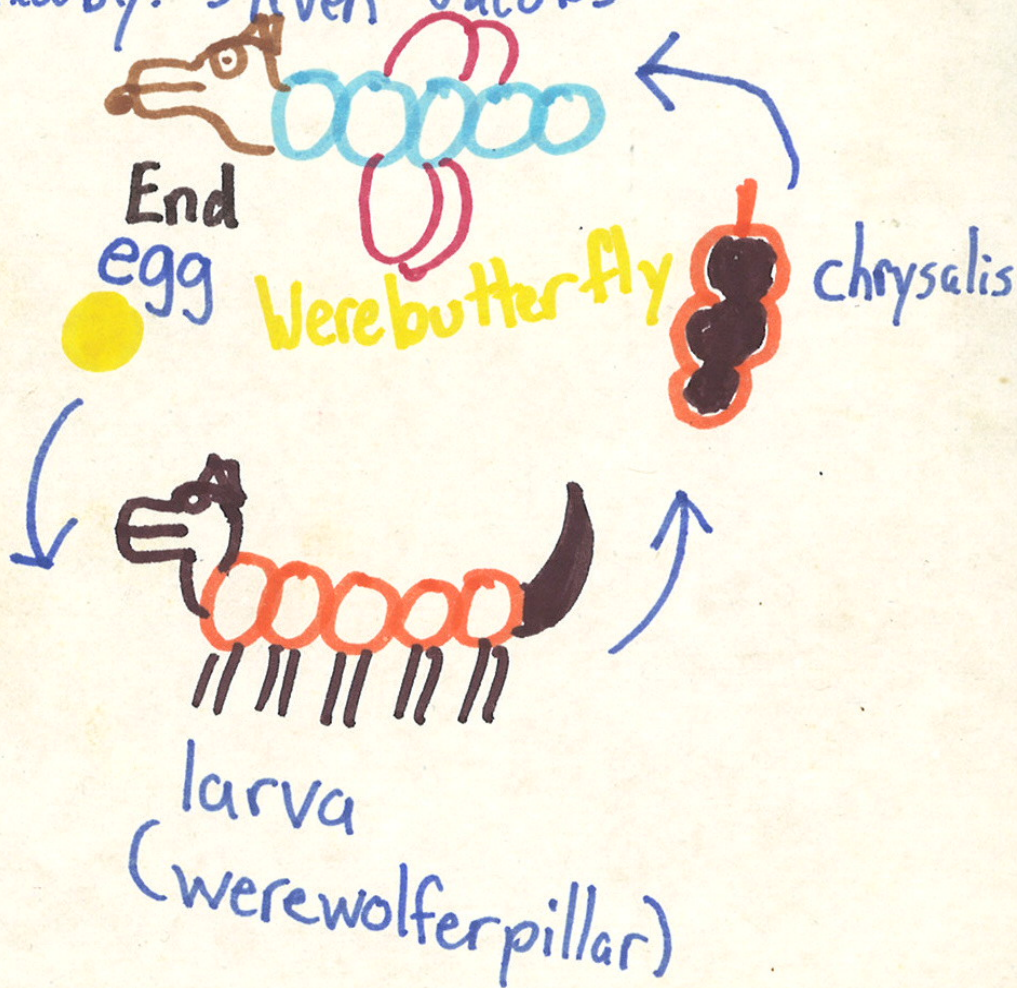 End
egg
Werebutterfly
chrysalis
larva
(werewolferpillar)